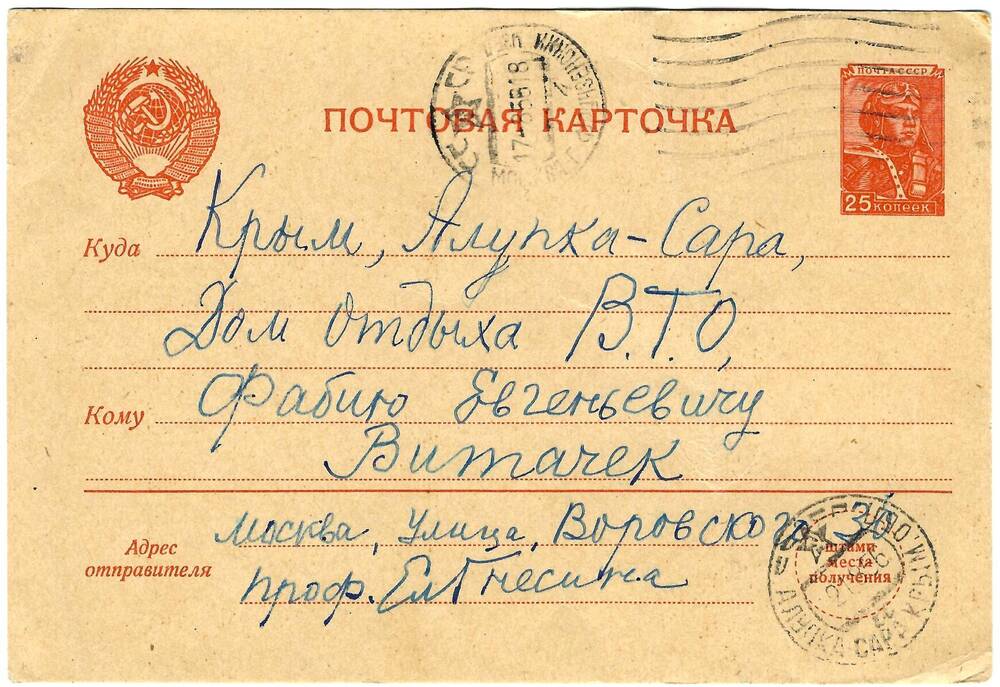 ПОЧТОВАЯ КАРТОЧКА
ПОЧТА СССР
25 КОПЕЕК
МОСКВА
Куда Крым, Алупка-Сара,
Дом отдыха В.Т.О,
Кому Фабию Евгеньевичу
Витачек
Адрес отправителя
Москва, улица Воровского, 30
проф. Ел Гнесина
штамп
места
получения
АЛУПКА САРА КРЫМ.ОБЛ